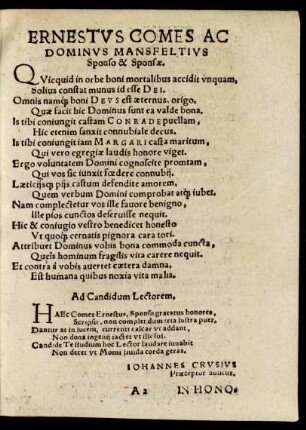 ERNESTVS COMES AC
DOMINVS MANSFELTIVS
Sponso & Sponsæ.
QVicquid in orbe boni mortalibus accidit vnquam,
Solius constat munus id esse DEI.
Omnis namq́; boni DEVS est æternus origo,
Quæ facit hic Dominus sunt ea valde bona.
Is tibi coniungit castam CONRADE puellam,
Hic etenim sanxit connubiale decus.
Is tibi coniungit iam MARGARI casta maritum,
Qui vero egregiæ laudis honore viget.
Ergo voluntatem Domini cognoscite promtam,
Qui vos sic iunxit fœdere connubij.
Læticijsq; pijs castum defendite amorem,
Quem verbum Domini comprobat atq; iubet.
Nam complectetur vos ille fauore benigno,
Ille pios cunctos deseruisse nequit.
Hic & coniugio vestro benedicet honesto
Vt quoq; cernatis pignora cara tori.
Attribuet Dominus vobis bona commoda cuncta,
Queis hominum fragilis vita carere nequit.
Et contra à vobis auertet cætera damna,
Est humana quibus noxia vita malia.
Ad Candidum Lectorem.
HAEc Comes Ernestus, Sponso gratatus honores,
Scripsit, non complet dum tria lustra puer.
Dantur at in lucem, currenti calcar vt addant,
Non dona ingenij iactet vt ille sui.
Candide Te studium hoc Lector laudare iuuabit
Non decet vt Momi liuida corda geras.
IOHANNES CRVSIVS
Præceptor aulicus.
A 2 IN HONO-